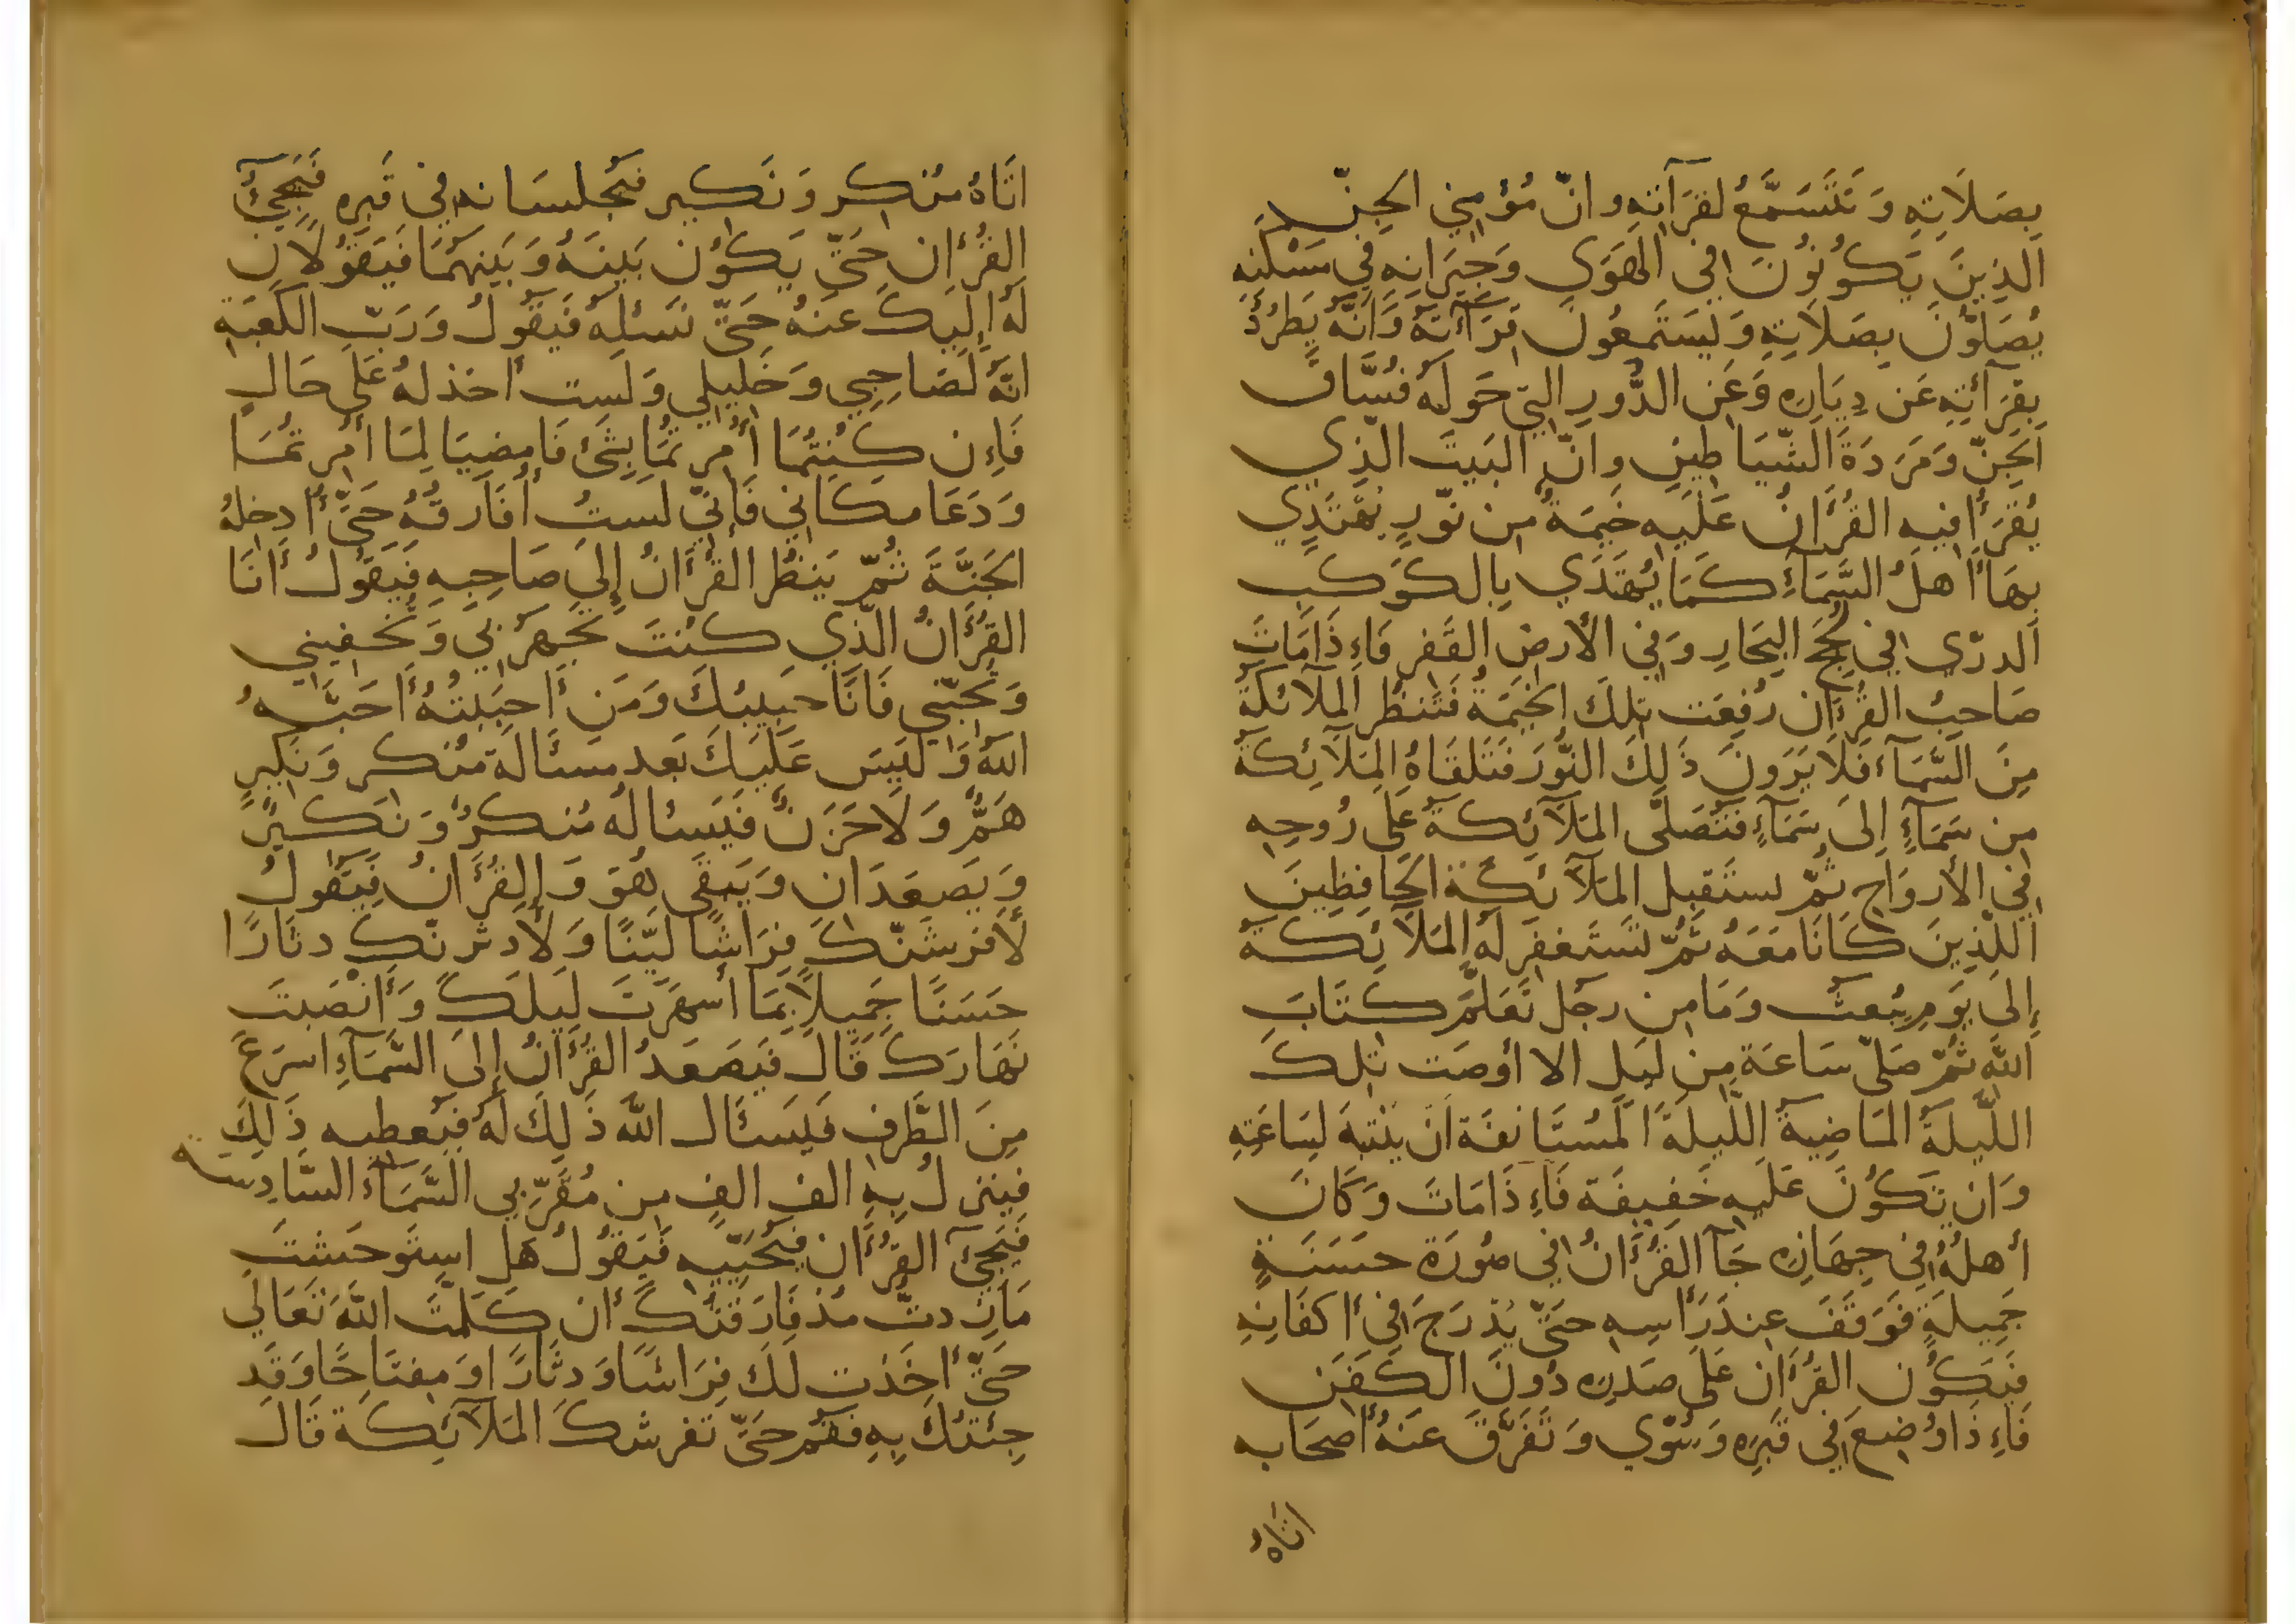 بِصَلَاتِهِ وَتَتَسَمَّعُ لقرَآئتِهِ وانّ مُؤمِنِي الجِنّ
الَّذِينَ يَكُونُونَ فِي الهَوَىِ وَجِيرَانِهِ فِي مَسْكَنِهِ
يُصَلّونَ بِصَلَاتِهِ وَيَستَمِعُونَ قِرَآءَتَهُ وَانّهُ يَطرُدُ
بِقِرَآئتِهِ عَن دِيَارِه وَعَن الدُّورِ التِي حَولَهُ فُسَّاقَ
الجِنّ وَمَرَدَةَ الشّيَاطِينِ وانّ البَيتَ الّذِي
يُقرَأ فِيهِ القُرْأَانُ عَلَيهِ خَيمَةٌ مِن نُورٍ يَهتَدِي
بِهَا أَهلُ السَّمَآءِ كَمَا يُهتَدَي بِالكَوكَبِ
الدرّي فِي لُجَجِ البِحَارِ وَفِي الأرضِ القَفرِ فَاءِذَا مَاتَ
صَاحِبُ القُرْأَن رُفِعَت تِلكَ الخَيمَةُ فَتَنظُر المَلآئكَةُ
مِنَ السَّمَآء فَلَا يَرَونَ ذَلِكَ النُّورَ فَتَلقَاهُ المَلآئِكَة
مِن سَمَآءٍ إِلَى سَمَآءٍ فَتُصَلّى المَلآئِكَة عَلَى رُوحِهِ
فِي الأروَاحِ ثُمّ تستَقبِل المَلآئِكَة الحَافِظِينَ
اللّذِينَ كَانَا مَعَهُ ثُمّ تَستَغفِر لَهُ المَلآئِكَة
إِلَى يَومِ يُبعَث وَمَا مِن رجُل تَعَلّمَ كِتَابَ
اللّه ثُمّ صَلّى سَاعَة مِن لَيلِ الا أوصَت تِلكَ
اللّيلَة المَاضِيَة اللّيلَةَ المُستَانفَة اَن يَنْتَبِهَ لِسَاعَتِهِ
وَان تَكُونَ عَلَيهِ خَفِيفَة فَاءِذَا مَاتَ وَكَانَ
أهلُهُ فِي جِهَازِه جَآ القُرْأَانُ فِي صُورَة حسَنَةٍ
جَمِيلَةٍ فَوَقَفَ عِندَ رَأسِهِ حَتّىَ يُدرَجَ فِي أكفَانِهِ
فَيَكُون القُرْأَان عَلَى صَدرِه دُونَ الكَفَنِ
فَاءِذَا وُضِعَ فِي قَبرِه وَسُوّي وَتَفَرَّقَ عَنهُ أصحَابه
اتَاهُ
اتَاهُ مُنكِر وَنَكِير فَيُجلسَانه فِي قَبرِه فَيَجِيءُ
القُرْأَان حَتّىَ يَكُون بَينَهُ وَبَينهُمَا فَيَقُولَانِ
لَهُ إِلَيكَ عَنهُ حَتّى نَسئلهُ فَيَقُولُ وَرَبّ الكَعبَةِ
انّهُ لَصَاحِبِي وَخَلِيلِي وَلَست أخذله عَلَى حَالِ
فَاءِن كُنتُمَا أُمِرتُمَا بِشَئ فَامضِيَا لِمَا أُمِرتُمَا
وَدَعَا مكَانِي فَإنّي لَستُ أُفَارقُهُ حَتّىَ أُدخِلهُ
الجَنَّةَ ثُمّ يَنظُر القُرْأَانُ إِلَى صَاحِبِهِ فَيَقُولُ أَنَا
القُرْأَانُ الَّذِي كُنتَ تَجهَر بِي وَتُخفِينِي
وَتُحِبّنِي فَانَا حَبِيبُكَ وَمَن أَحبَبتُهُ أَحَبَّهُ
اللّهُ وَلَيسَ عَلَيكَ بَعد مَسئَالَة مُنكر وَنَكِيرٍ
هَمٌّ وَلَا حَزَنٌ فَيَسئالُهُ مُنكرٌ وَنَكِيرٌ
وَيَصعَدَانِ وَيَبقَى هُوَ وَالقُرْأَانُ فَيَقُولُ
لَأفرشَنّكَ فِرَاشًا لَيّنًا وَلَأدثرنّكَ دثَارًا
حَسَنًا جَمِيلًا بِمَا أسهَرتَ لَيلَكَ وَأَنْصَبتَ
نَهَارَكَ قَالَ فَيَصعَدُ القُرْأَانُ إِلَى السَّمَآءِ اسرَعَ
مِنَ الطَّرفِ فَيَسئَالُ اللّه ذَلِكَ لَهُ فَيُعطِيهِ ذَلِكَ
فينزلُ بِهِ الف الفِ مِن مُقَرّبِي السَّمَآء السَّادِسة
فَيَجِئُ القُرْأَان فَيُحَيِّيهِ فَيَقُولُ هَلِ استَوحَشتَ
مَازِدتّ مُذ فَارَقتُكَ أن كَلّمتَ اللّهَ تَعَالَي
حَتّىَ أَخَذت لَكَ فِرَاشًا وَدثَارًا وَمِفتَاحًا وَقَد
جِئتُكَ بِهِ فقُم حَتّىَ تَفرشكَ المَلَآئِكَة قَالَ